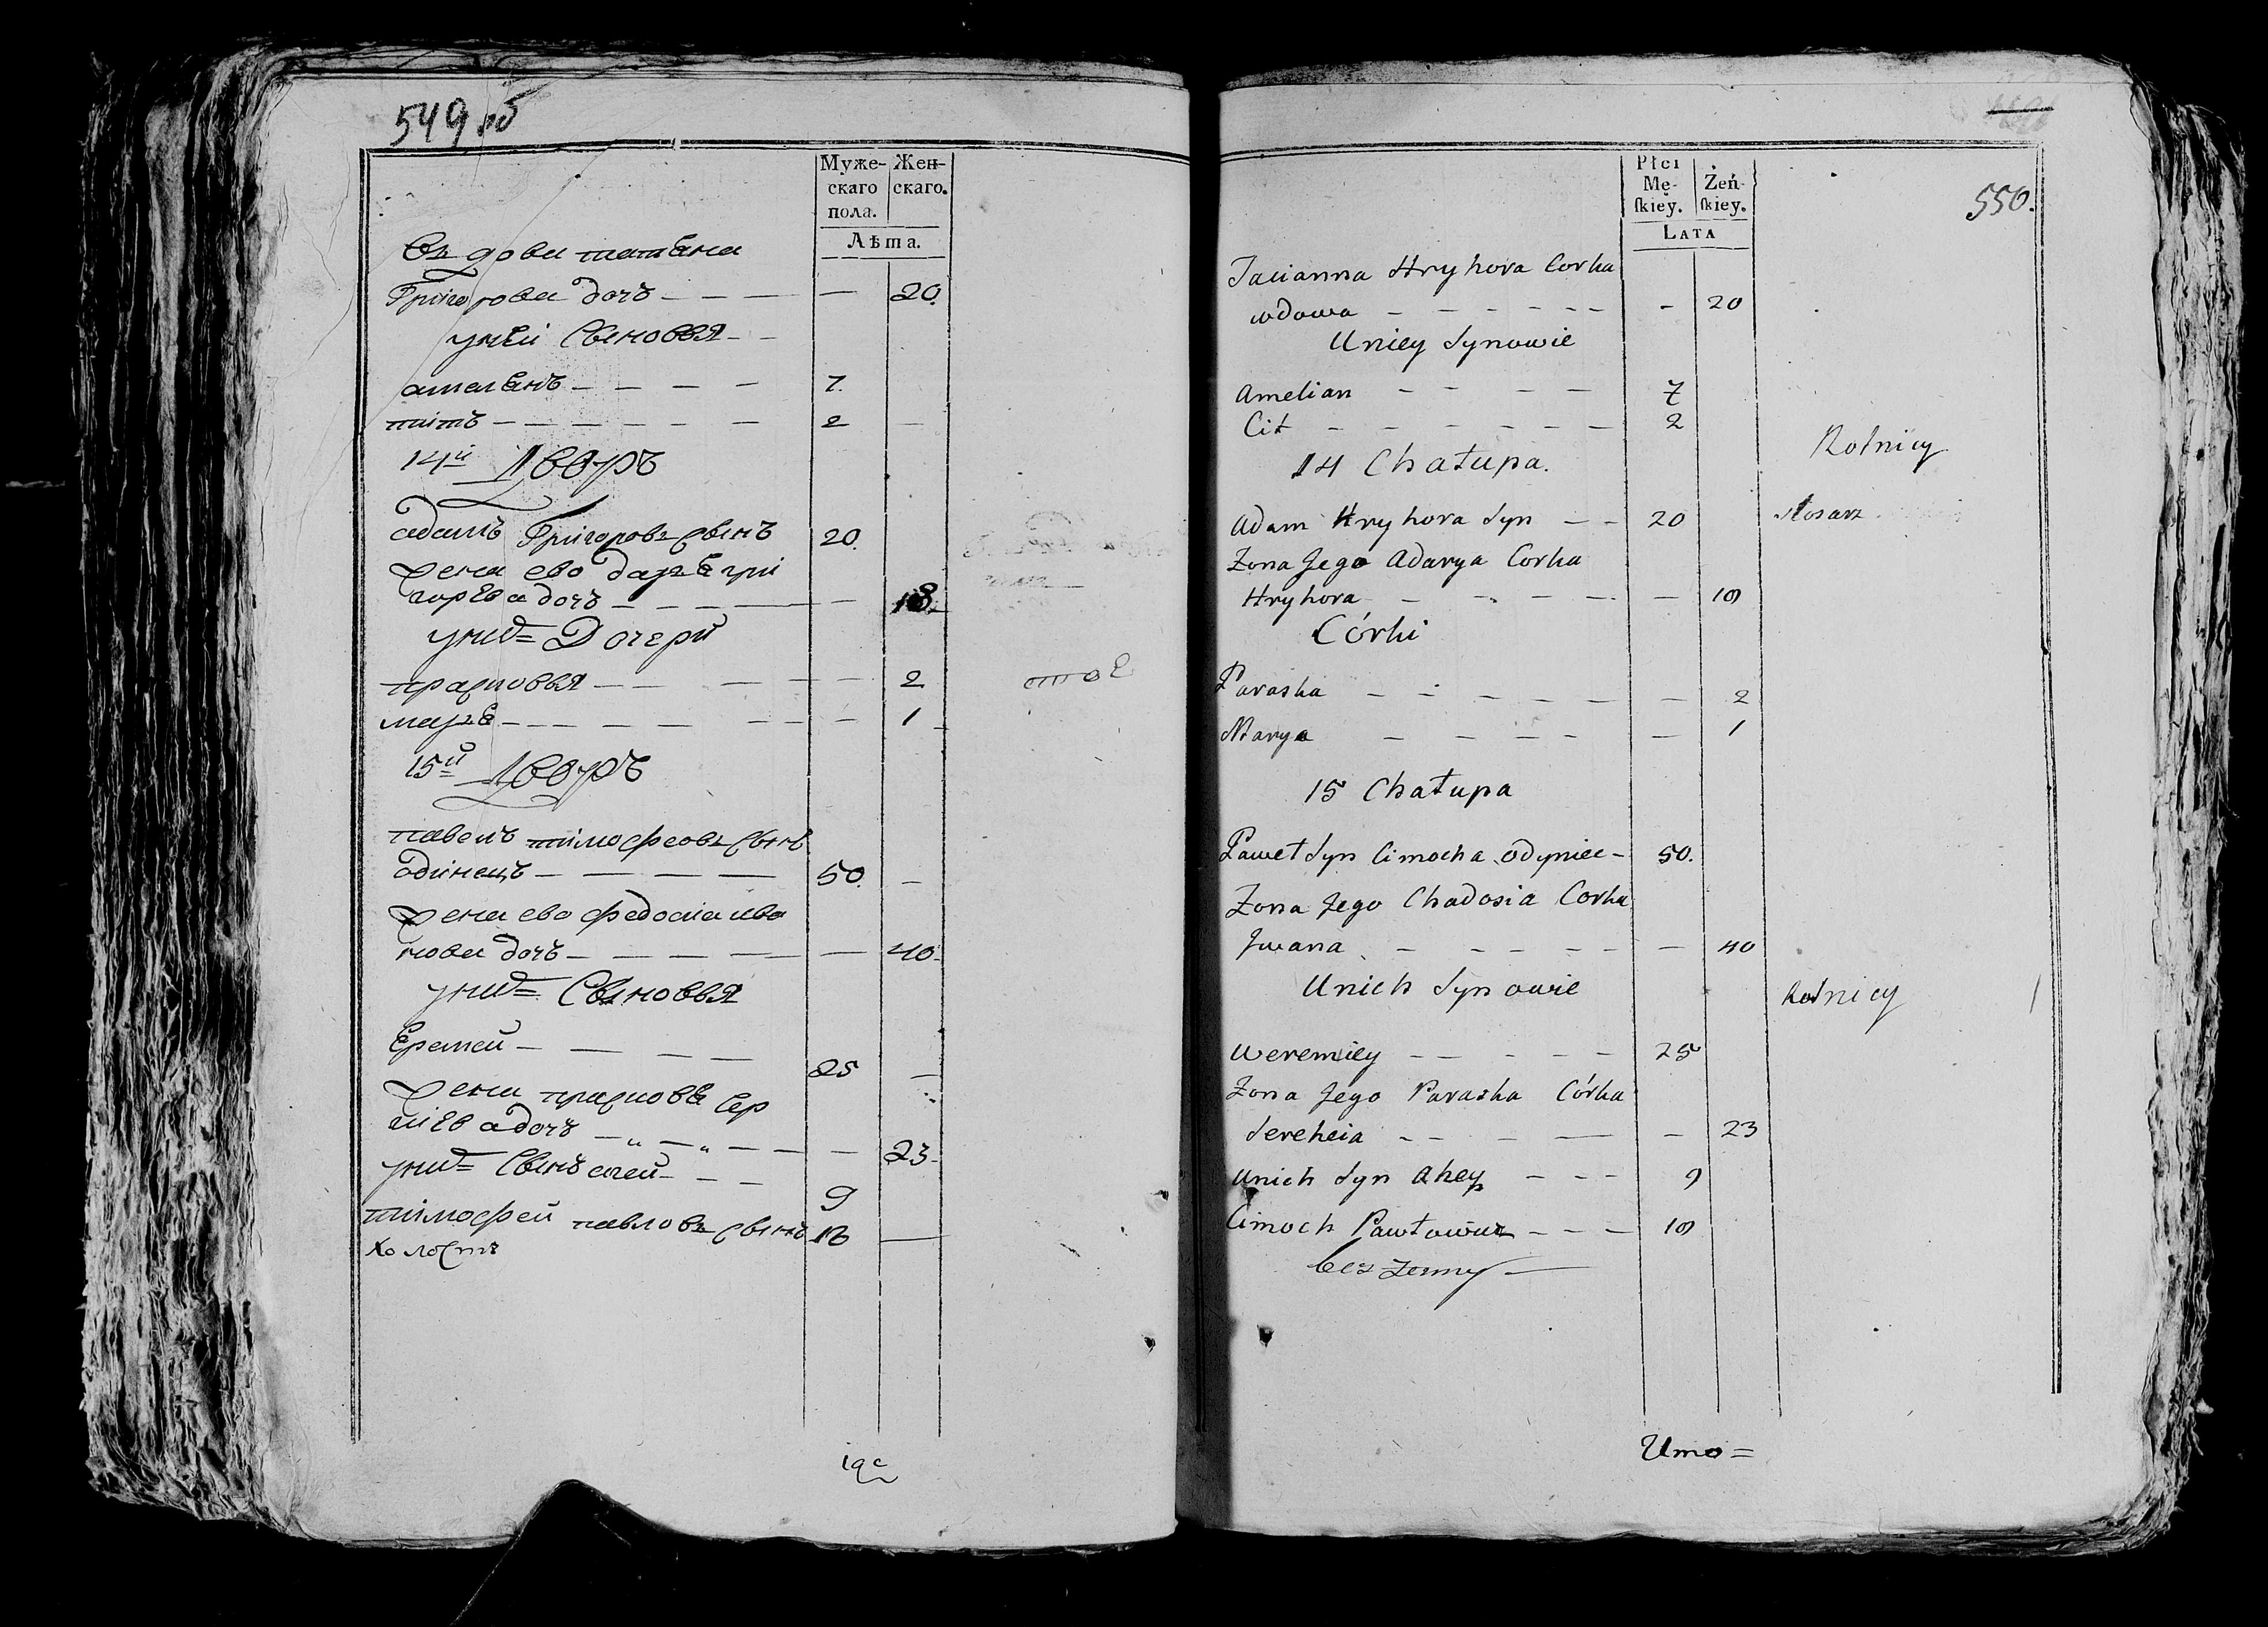 549 об
Муже- Жен-
скаго скаго.
пола.
Лѣта.
Въдова татьяна
Григорова дочъ — — — — 20.
унѣй Сыновья — —
амельянъ — — — — 7.
титъ — — — — — — 2 —
14й Дворъ
адамъ Григоровъ сынъ 20.
жена ево дарья гри
горева дочъ — — — — — 18
уних= Дочери
прасковья — — — — — 2
марья — — — — — — — 1
15й Дворъ
павелъ тимофеовъ сынъ
одинецъ — — — — 50. —
жена ево федосиа ива
нова дочъ — — — — — — 40.
уних= Сыновья
Еремей — — — — 25 —
жена прасковья Сер
гиева дочъ — „ — „ — — — 23.
уних= Сынъ агей — — — 9
тимофей павловъ сынъ 18 —
холостъ
550.
Płci
Mę- Żeń-
ſkiey. ſkiey.
LATA
Tacianna Hryhora Corka
wdowa — — — — — — - 20
Uniey Synowie
Amelian — — — — 7
Cit — — — — — — 2
Rolnicy
14 Chałupa.
Adam Hryhora Syn — — 20 slosarz
Zona Jego Adarya Corka
Hryhora — — — — — — 18
Córki
Paraska — — — — — — 2
Marya — — — — — 1
15 Chałupa
Paweł Syn Cimocha Odyniec — 50.
Zona Jego Chadosia Corka
Jwana — — — — — — 40
Unich Synowie Rolnicy
Weremiey — — — — — 25
Zona Jego Paraska Córka
Sereheia — — — — — 23
Unich Syn Ahey — — — 9
Cimoch Pawłowicz — — — 18
bez zenny —
Umo=